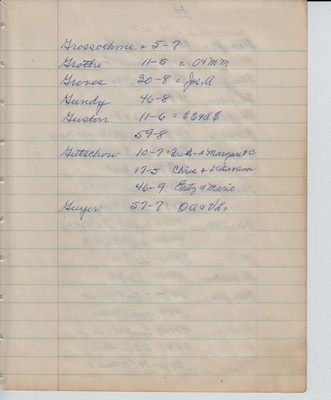 Grossoehme = 5-7
Grothe 11-5 = O & M M
Groves 30-8 = Jos. A
Gundy 46-8
Guston 11-6 = E E & A E
59-8
Gutschow 10-7 = & Margaret C
17-5 Chris &
46-9 Fritz & Marie
Guyer 57-7 O A &